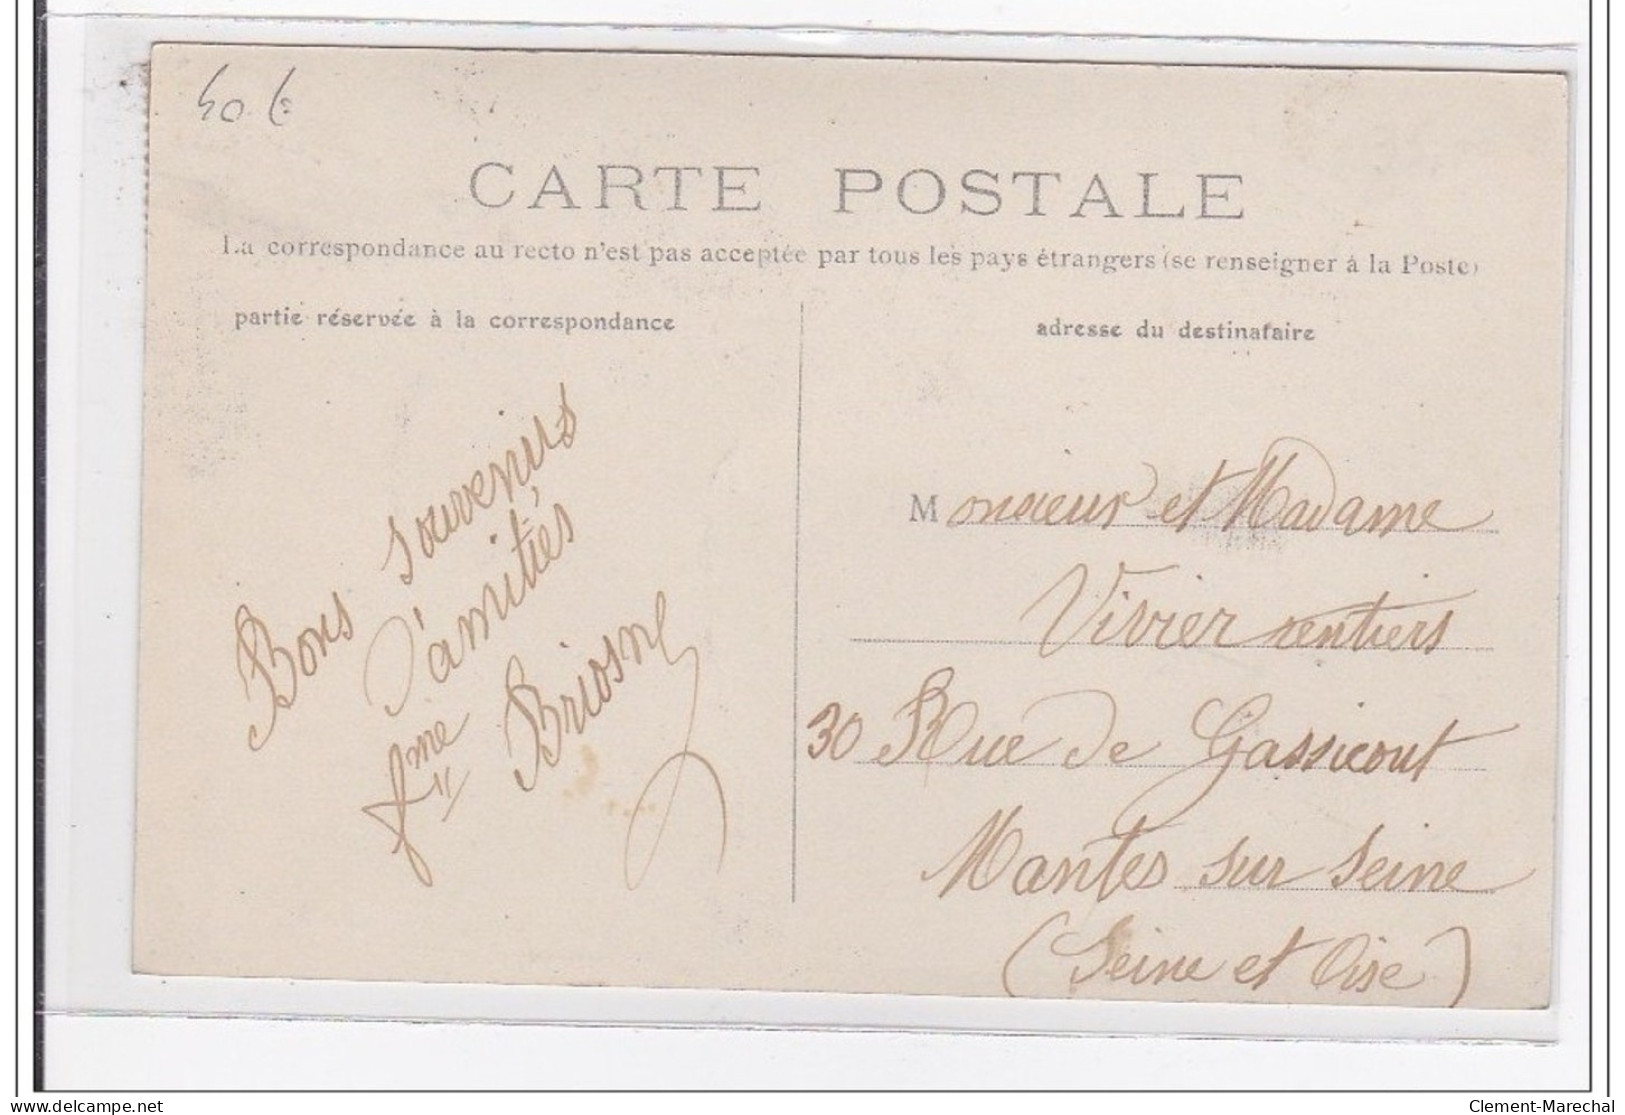 40 €
CARTE POSTALE
La correspondance au recto n'est pas acceptée par tous les pays étrangers (se renseigner à la Poste)
partie réservée à la correspondance
adresse du destinataire
Bons souvenirs
d'amitiés
fme Briosne
Monsieur et Madame
Vivier rentiers
30 Rue de Gassicourt
Mantes sur Seine
(Seine et Oise)
www.delcampe.net
Clement-Marechal